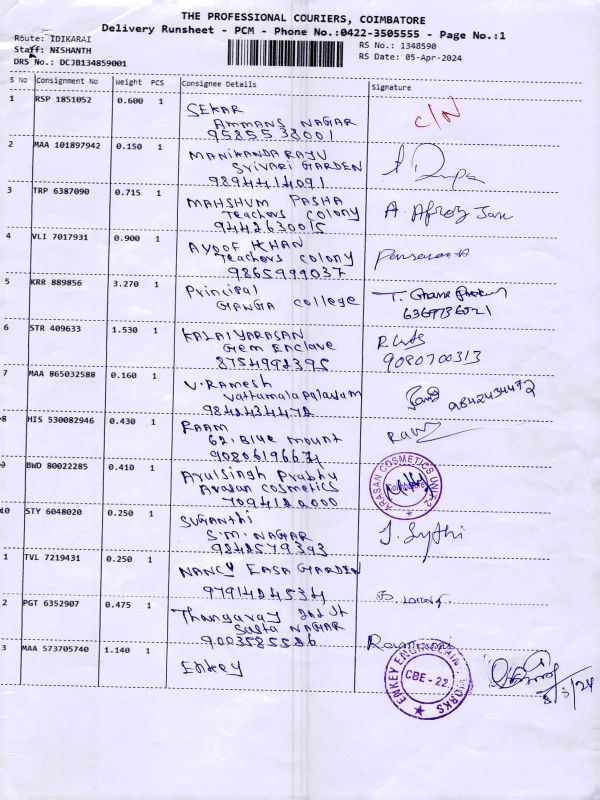 THE PROFESSIONAL COURIERS, COIMBATORE
Delivery Runsheet - PCM - Phone No.:0422-3505555 - Page No.:1
Route: IDIKARAI
RS No.: 1348590
Staff: NISHANTH
RS Date: 05-Apr-2024
DRS No.: DCJB134859001
S No Consignment No Weight PCS Consignee Details Signature
1 RSP 1851052 0.600 1 SEKAR C/N
Ammans NAGAR
9585538001
2 MAA 101897942 0.150 1 MANIKANDA RAJU
Srivari GARDEN
9894414091
3 TRP 6387090 0.715 1 MAHSHUM PASHA
Teachers colony A. Afroz Jan
9442630015
4 VLI 7017931 0.900 1 AYOOF KHAN
Teachers colony
9865999037
5 KRR 889856 3.270 1 Principal
GANGA college
6 STR 409633 1.530 1 KALAIYARASAN
Gem Enclave
8754992395 9080700313
7 MAA 865032588 0.160 1 V. Ramesh
Vattamalapalayam 9842434472
9842434472
8 HIS 530082946 0.430 1 RAAM
62, Blue mount
9080619667
9 BWD 80022285 0.410 1 Arulsingh Prabhu
Arasan cosmetics
ARASAN COSMETICS UNIT-2
10 STY 6048020 0.250 1 SUGANTHI
S.M. NAGAR
9848579393
1 TVL 7219431 0.250 1 NANCY EASA GARDEN
9791424534
2 PGT 6352907 0.475 1 Thangaraj 2nd St
Sasta NAGAR
9003585586
3 MAA 573705740 1.140 1 Enkey
ENKEY ENGINEERING WORKS
CBE-22